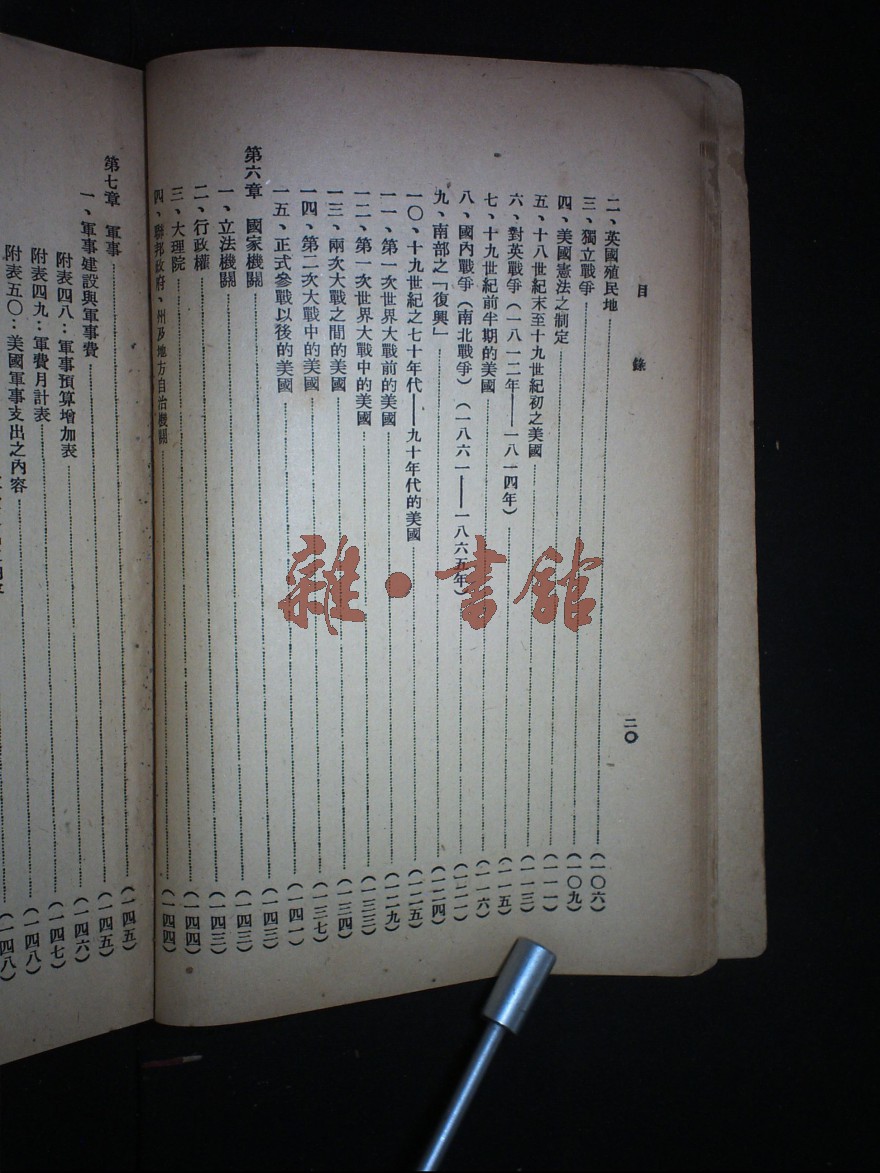 目 錄
二〇
二、英國殖民地(一〇六)
三、獨立戰爭(一〇九)
四、美國憲法之制定(一一一)
五、十八世紀末至十九世紀初之美國(一一三)
六、對英戰爭(一八一二年——一八一四年)(一一五)
七、十九世紀前半期的美國(一一六)
八、國內戰爭(南北戰爭)(一八六一——一八六五年)(一二一)
九、南部之「復興」(一二四)
一〇、十九世紀之七十年代——九十年代的美國(一二五)
一一、第一次世界大戰前的美國(一二九)
一二、第一次世界大戰中的美國(一三三)
一三、兩次大戰之間的美國(一三四)
一四、第二次大戰中的美國(一三七)
一五、正式參戰以後的美國(一四一)
第六章 國家機關(一四三)
一、立法機關(一四三)
二、行政權(一四三)
三、大理院(一四四)
四、聯邦政府、州及地方自治機關(一四四)
第七章 軍事(一四五)
一、軍事建設與軍事費(一四五)
附表四八:軍事預算增加表(一四六)
附表四九:軍費月計表(一四七)
附表五〇:美國軍事支出之內容(一四八)
(一四八)
雜·書館